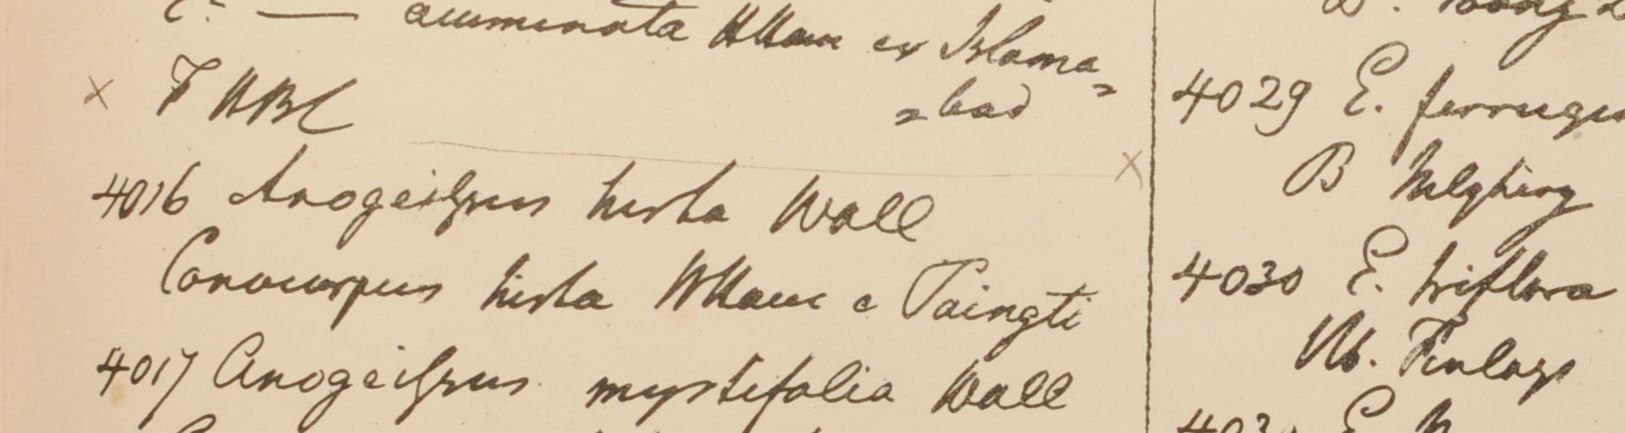 C. — acuminata HHam ex Islama=
=bad
× F HBC
4016 Anogeissus hirta Wall
Conocarpus hirta HHam e Taingti
4017 Anogeissus myrtifolia Wall
4029 E. ferrugin
B
4030 E. triflora
Hb. Finlays